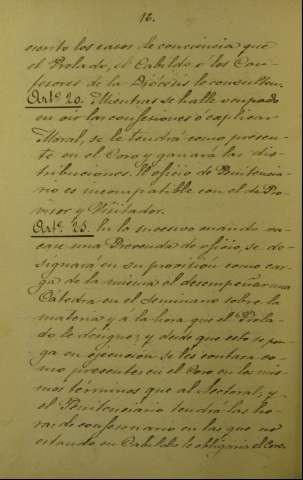 16.
cierto los casos de conciencia que
el Prelado, el Cabildo ó los Con-
fesores de la Diócesis le consulten.
Artº 20. Mientras se halle ocupado
en oir las confesiones ó explicar
Moral, se le tendrá como presen-
te en el Coro y ganará las dis-
tribuciones. El oficio de Penitencia-
rio es incompatible con el de Pro-
visor y Visitador.
Artº 25. En lo sucesivo cuando va-
care una Prevenda de oficio, se de-
signará en su provisión como car-
ga de la misma el desempeñar una
Cátedra en el Seminario sobre la
materia y á la hora que el Prela-
do le designe; y desde que esto se pon-
ga en ejecución se les contará co-
mo presentes en el Coro en los mis-
mos términos que al Lectoral, y
el Penitenciario tendrá las ho-
ras de confesonario en las que no
estando en Cabildo le obligaria el Coro.